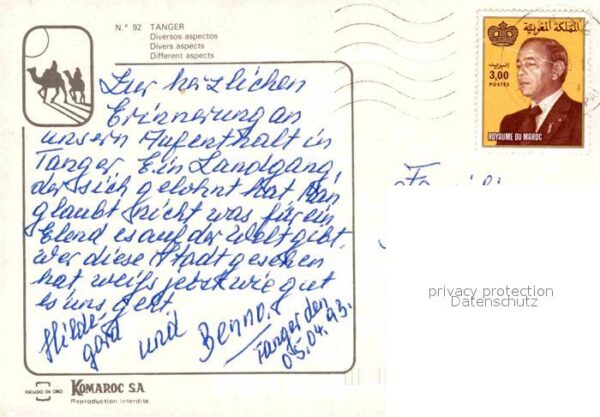 N.° 92 TANGER
Diversos aspectos
Divers aspects
Different aspects
Zur herzlichen
Erinnerung an
unsern Aufenthalt in
Tanger. Ein Landgang,
der sich gelohnt hat. Man
glaubt nicht was für ein
Elend es auf der Welt gibt.
Wer diese Stadt gesehen
hat, weiß jetzt wie gut
es uns geht.
Hilde-
gard und Benno.
Tanger den
05.04.93.
ESCUDO DE ORO KOMAROC S.A.
Reproduction interdite
المملكة المغربية
البريد
3,00
POSTES
ROYAUME DU MAROC
privacy protection
Datenschutz